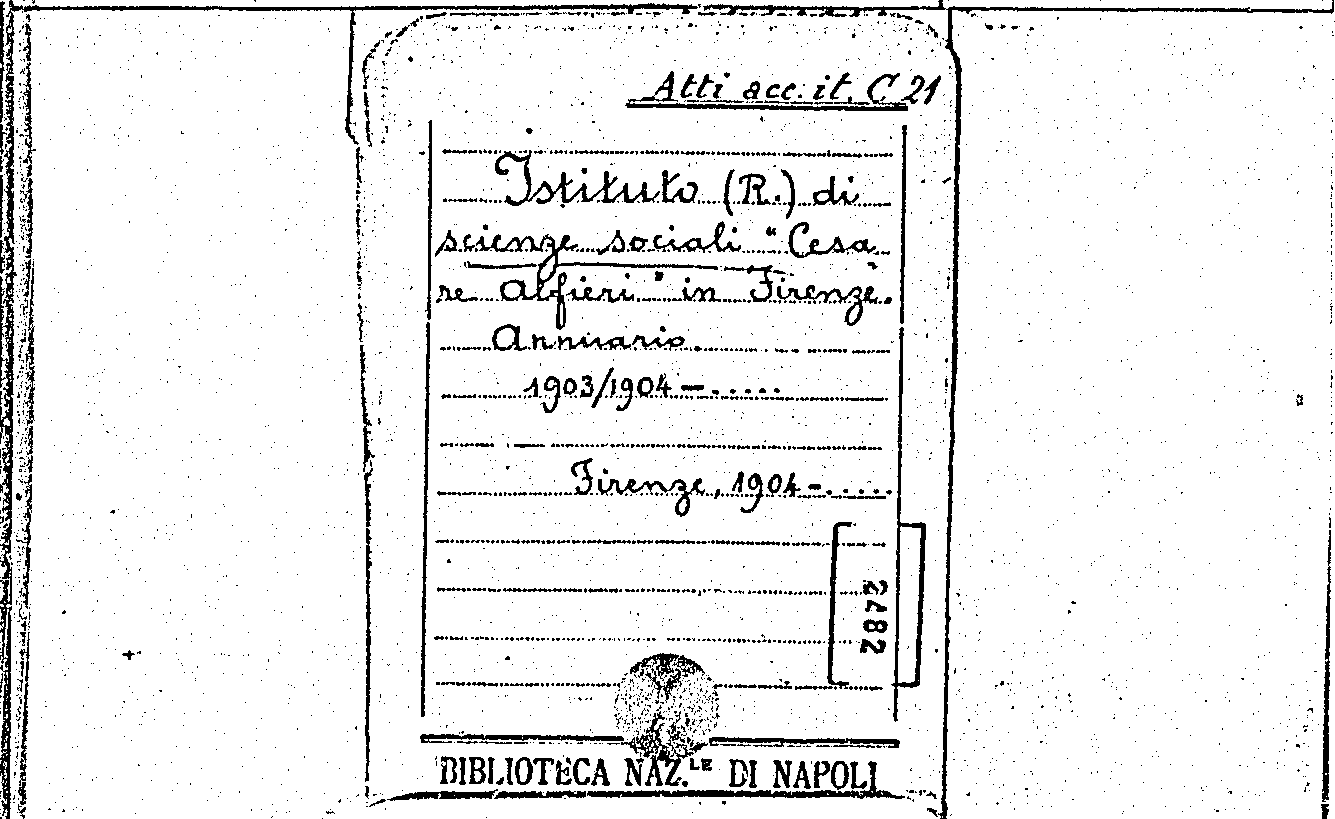 Atti acc. it. C 21
Istituto (R.) di
scienze sociali "Cesa
re Alfieri" in Firenze.
Annuario.
1903/1904 - .....
Firenze, 1904 - .....
2482
BIBLIOTECA NAZ.LE DI NAPOLI